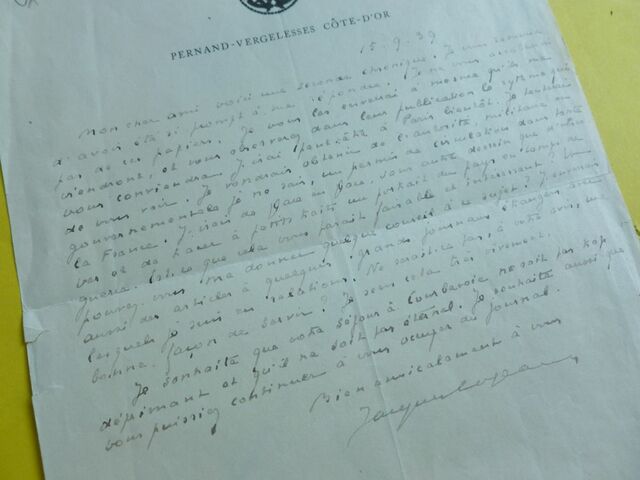 PERNAND-VERGELESSES CÔTE-D'OR
15.9.39
Mon cher ami voici une seconde chronique. Je vous remercie
d'avoir été si prompt à me répondre. Je ne vous accablerai
pas de ces papiers. Je vous les enverrai à mesure qu'ils me
viendront, et vous observerez dans leur publication le rythme qui
vous conviendra. J'irai peut-être à Paris bientôt. Je tenterai
de vous voir. Je voudrais obtenir de l'autorité militaire ou
gouvernementale je ne sais, un permis de circulation dans toute
la France. J'irais de place en place, sans autre dessein que d'obser
ver et de tracer à petits traits un portrait du pays en temps de
guerre. Est-ce que cela vous paraît faisable et intéressant?
pouvez-vous me donner quelque conseil à ce sujet? J'enverrais
aussi des articles à quelques grands journaux étrangers avec
lesquels je suis en relations. Ne serait-ce pas, à votre avis, une
bonne façon de servir? Je sens cela très vivement.
Je souhaite que votre séjour à Courbevoie ne soit pas trop
déprimant et qu'il ne soit pas éternel. Je souhaite aussi que
vous puissiez continuer à vous occuper du journal.
Bien amicalement à vous
Jacques Copeau